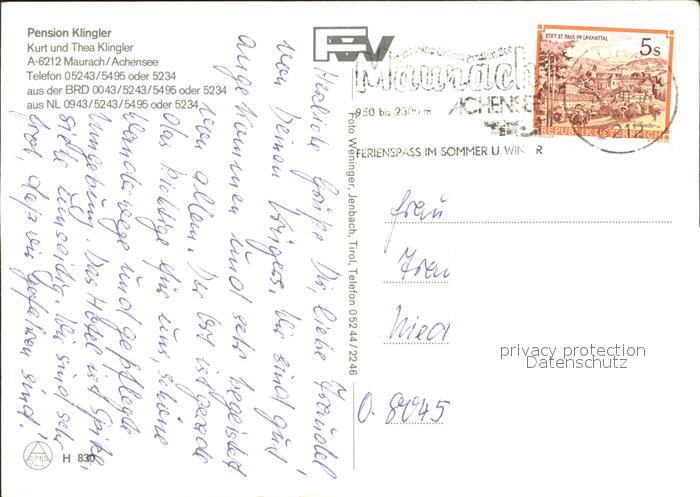 Pension Klingler
Kurt und Thea Klingler
A-6212 Maurach/Achensee
Telefon 05243/5495 oder 5234
aus der BRD 0043/5243/5495 oder 5234
aus NL 0943/5243/5495 oder 5234
Maurach
ACHENSEE
950 bis 2300 m
FERIENSPASS IM SOMMER U. WINTER
STIFT ST. PAUL IM LAVANTTAL
5s
REPUBLIK ÖSTERREICH
Foto Weninger, Jenbach, Tirol, Telefon 05244/2246
Herzliche Grüße Dir, liebe
von Deinen Wir sind gut
angekommen und sehr begeistert
von allem. Der Ort ist gerade
das Richtige für uns, schöne
Wanderwege und gepflegte
Umgebung. Das Hotel ist Spitze,
sind sehr
froh, daß wir gefahren sind.
Frau
O-
privacy protection
Datenschutz
H 830